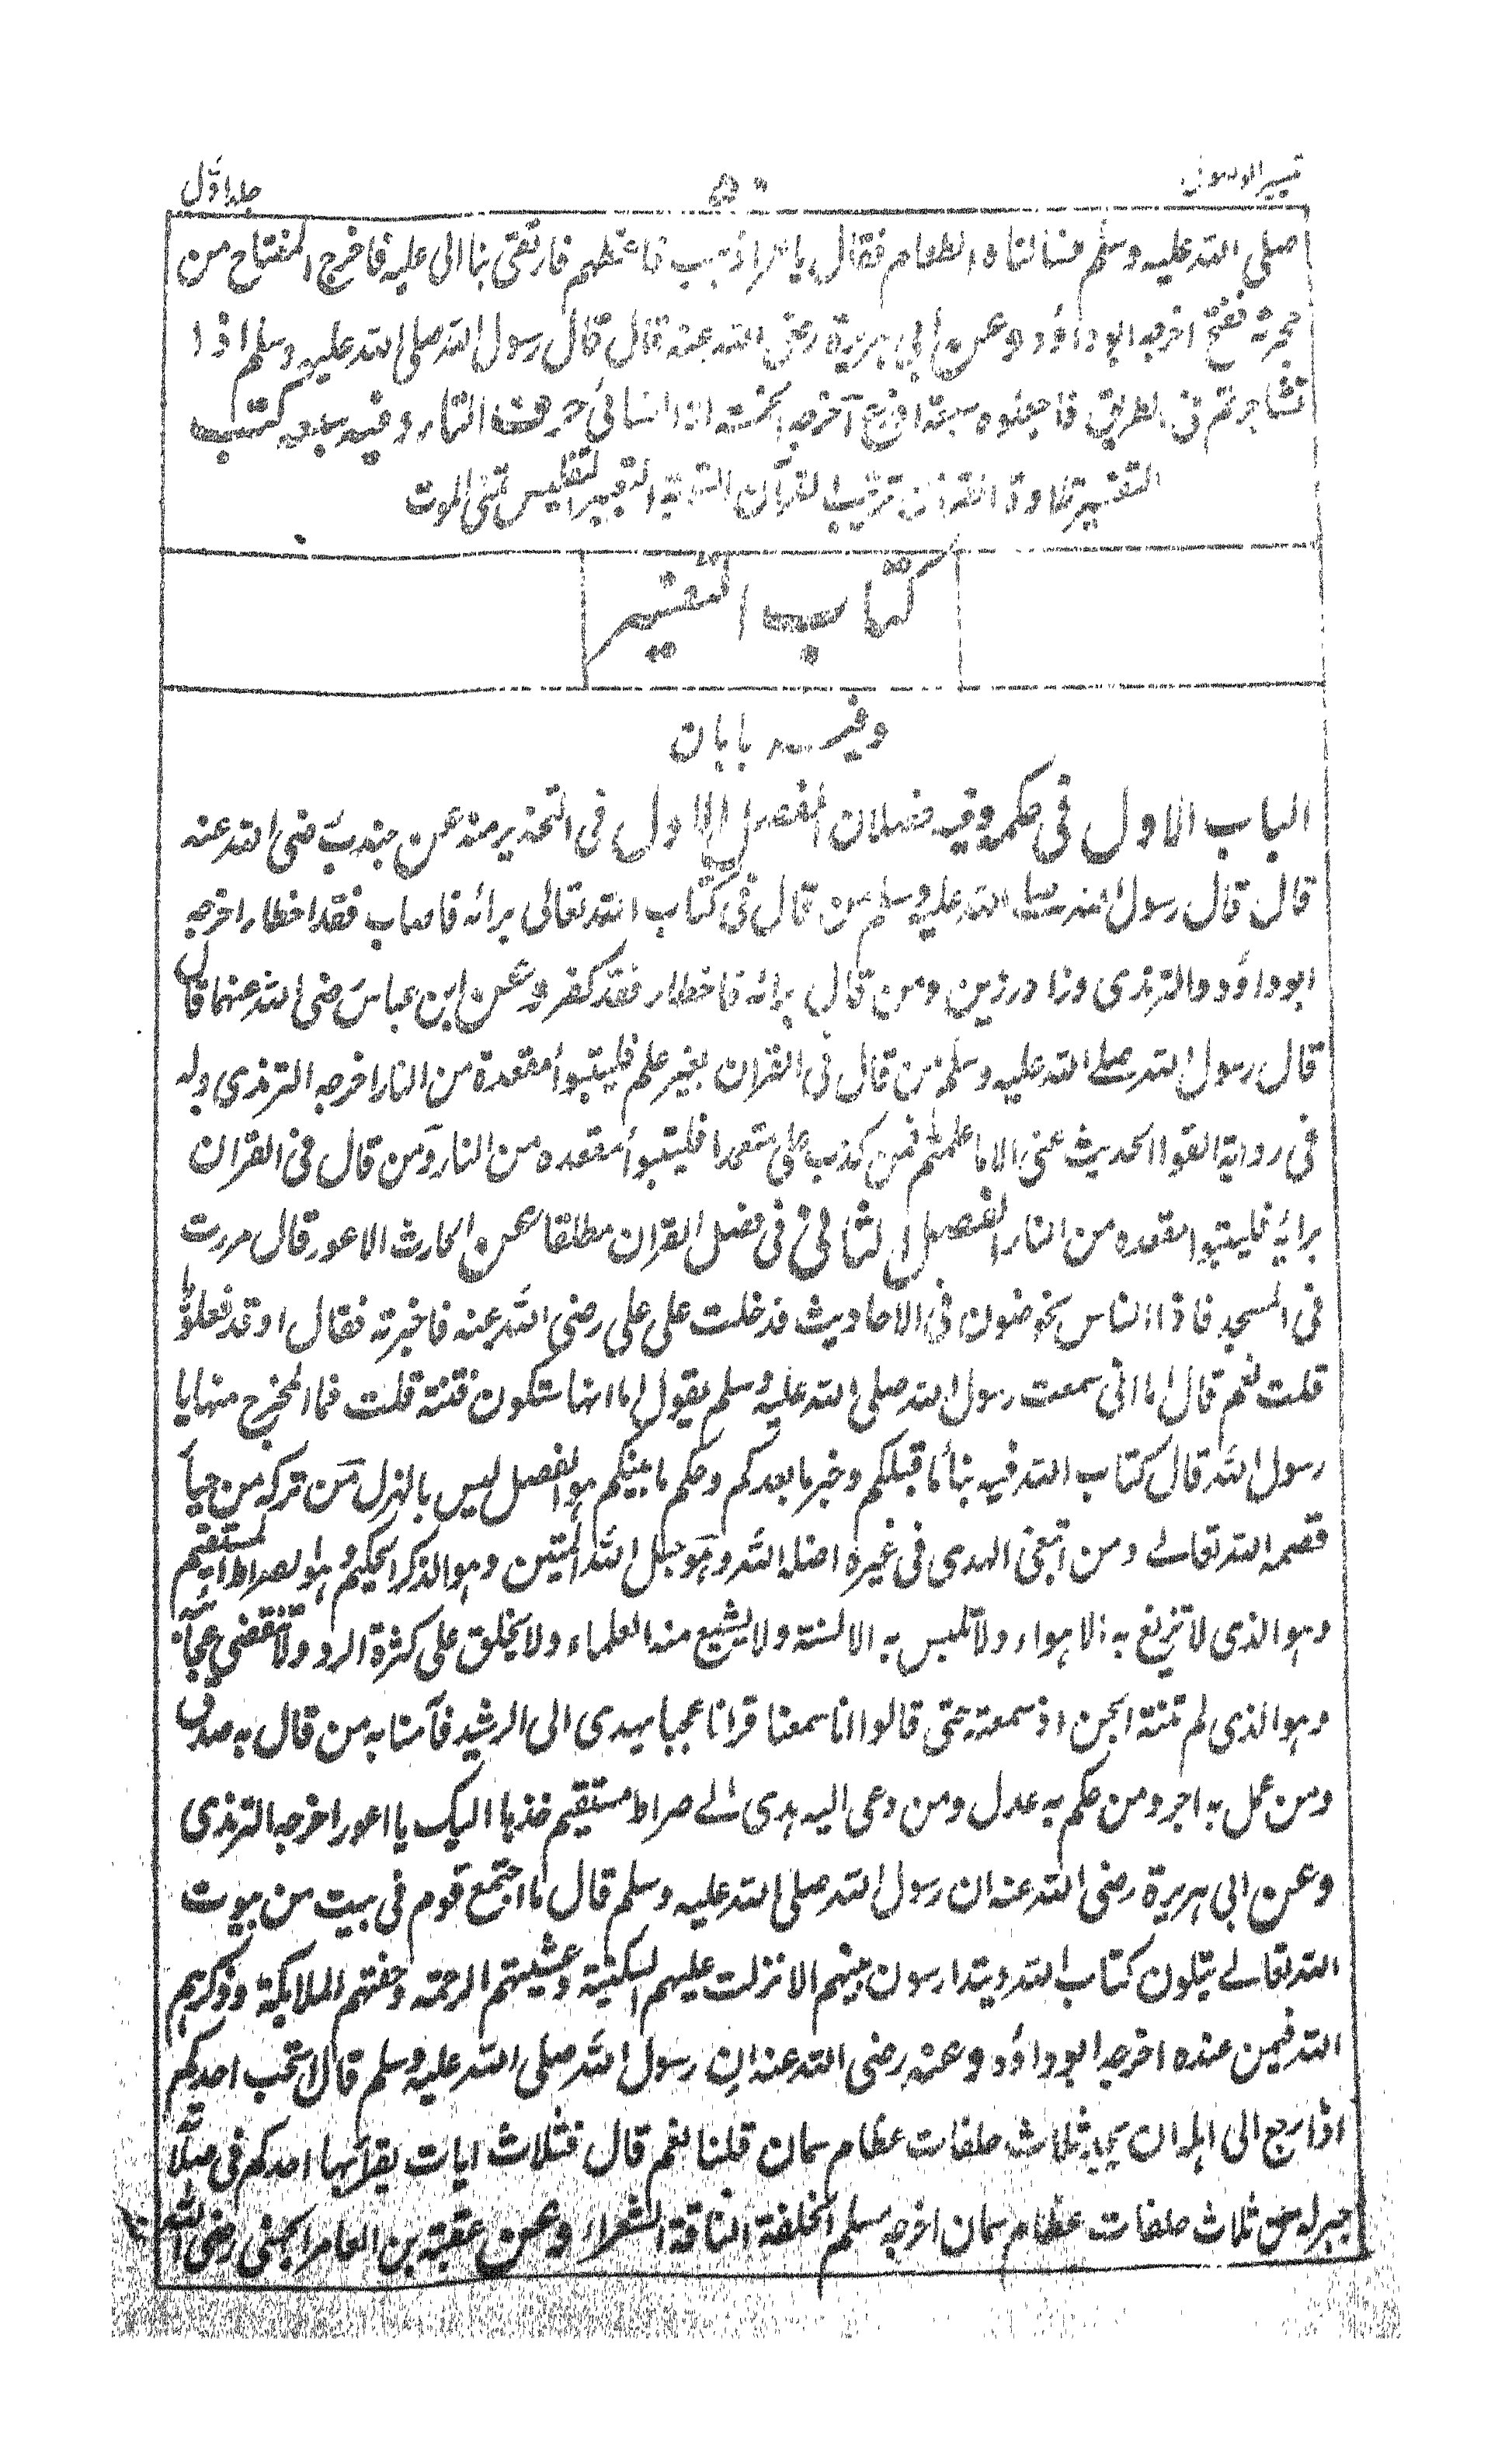 تيسير الوصول ۵۰ جلد اوّل
صلى الله عليه وسلم فسألناه الطعام فقال يا عمر اذهب فاعطهم فارتقى بنا الى علية فاخرج المفتاح من
حجزته ففتح اخرجه ابو داؤد وعن ابي هريرة رضى الله عنه قال قال رسول الله صلى الله عليه وسلم اذا
تشاجرتم فى الطريق فاجعلوه سبعة اذرع آخرجه الخمسة الا النسائى حرف التاء وفيه سبعة كتب
التفسير تلاوة القرآن ترتيب القرآن التوبة التعبير التفليس تمنى الموت
كتاب التفسير
وفيه بابان
الباب الاول فى حكمه وفيه فصلان الفصل الاول فى التحذير منه عن جندب رضى الله عنه
قال قال رسول الله صلى الله عليه وسلم من قال فى كتاب الله تعالى برائه فاصاب فقد اخطاء اخرجه
ابو داؤد والترمذى وزاد رزين ومن قال برائه فاخطاء فقد كفر وعن ابن عباس رضى الله عنهما قال
قال رسول الله صلى الله عليه وسلم من قال فى القران بغير علم فليتبوأ مقعدة من النار اخرجه الترمذى وله
فى رواية اتقوا الحديث عنى الا ما علمتم فمن كذب على متعمدا فليتبوأ مقعده من النار ومن قال فى القران
برايه فليتبوا مقعده من النار الفصل الثانى فى فضل القران مطلقا عن الحارث الاعور قال مررت
فى المسجد فاذا الناس يخوضون فى الاحاديث فدخلت على على رضى الله عنه فاخبرته فقال اوقد فعلوها
قلت نعم قال اما انى سمعت رسول الله صلى الله عليه وسلم يقول اما انها ستكون فتنة قلت فما المخرج منها يا
رسول الله قال كتاب الله فيه نبأ ما قبلكم وخبر ما بعدكم وحكم ما بينكم هو الفصل ليس بالهزل من تركه من جبار
قصمه الله تعالے ومن ابتغى الهدى فى غيره اضله الله وهو حبل الله المتين وهو الذكر الحكيم وهو الصراط المستقيم
وهو الذى لا تزيغ به الاهواء ولا تلبس به الالسنة ولا يشبع منه العلماء ولا يخلق على كثرة الرد ولا تنقضى عجائبه
وهو الذى لم تنته الجن اذ سمعته حتى قالوا انا سمعنا قرانا عجبا يهدى الى الرشد فآمنا به من قال به صدق
ومن عمل به اجر ومن حكم به عدل ومن دعى اليه هدى الے صراط مستقيم خذها اليك يا اعور اخرجه الترمذى
وعن ابى هريرة رضى الله عنه ان رسول الله صلى الله عليه وسلم قال ما اجتمع قوم فى بيت من بيوت
الله تعالے يتلون كتاب الله ويتدارسون بينهم الا نزلت عليهم السكينة وغشيتهم الرحمة وحفتهم الملايكة وذكرهم
الله فيمن عنده اخرجه ابو داؤد وعنه رضى الله عنه ان رسول الله صلى الله عليه وسلم قال ايحب احدكم
اذا رجع الى اهله ان يجد ثلاث خلفات عظام سمان قلنا نعم قال فثلاث ايات يقرأبها احدكم فى صلا
خير له من ثلاث خلفات عظام سمان اخرجه مسلم الخلفة الناقة العشراء وعن عقبة بن العامر الجهنى رضى الله